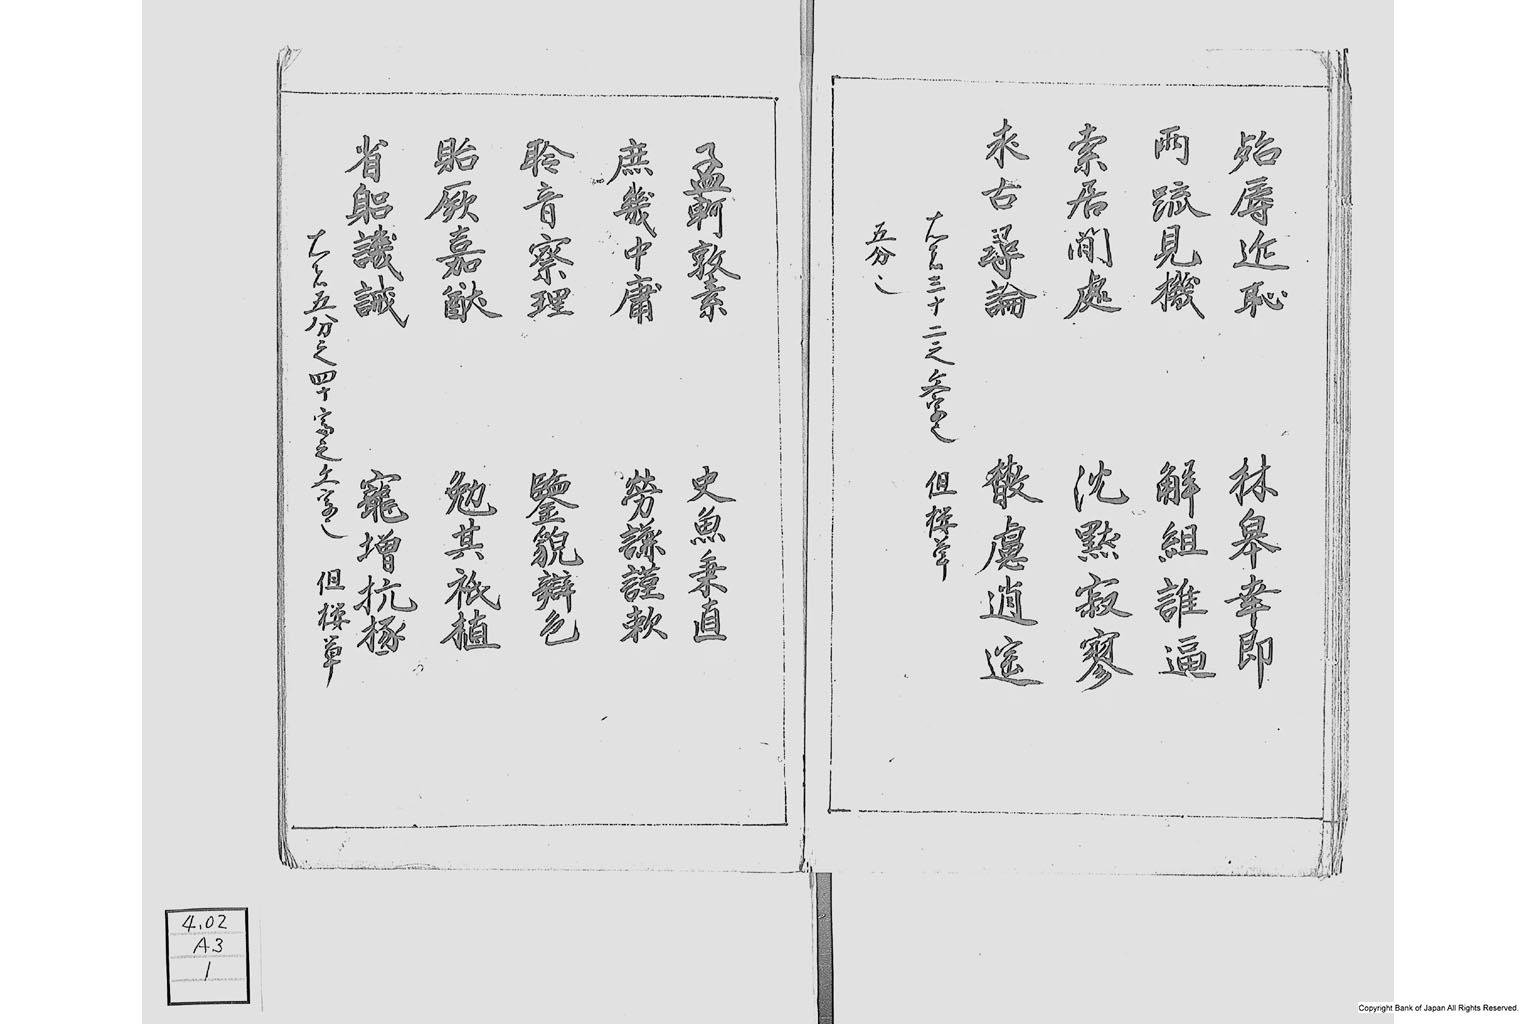 殆辱近恥 林皋幸即
兩疏見機 解組誰逼
索居閒處 沈默寂寥
求古尋論 散慮逍遥
三十二之文字 但楷草
五分
孟軻敦素 史魚秉直
庶幾中庸 勞謙謹敕
聆音察理 鑒貌辯色
貽厥嘉猷 勉其祗植
省躬譏誡 寵增抗極
五分之四十字之文字 但楷草
4.02
A3
1
Copyright Bank of Japan All Rights Reserved.